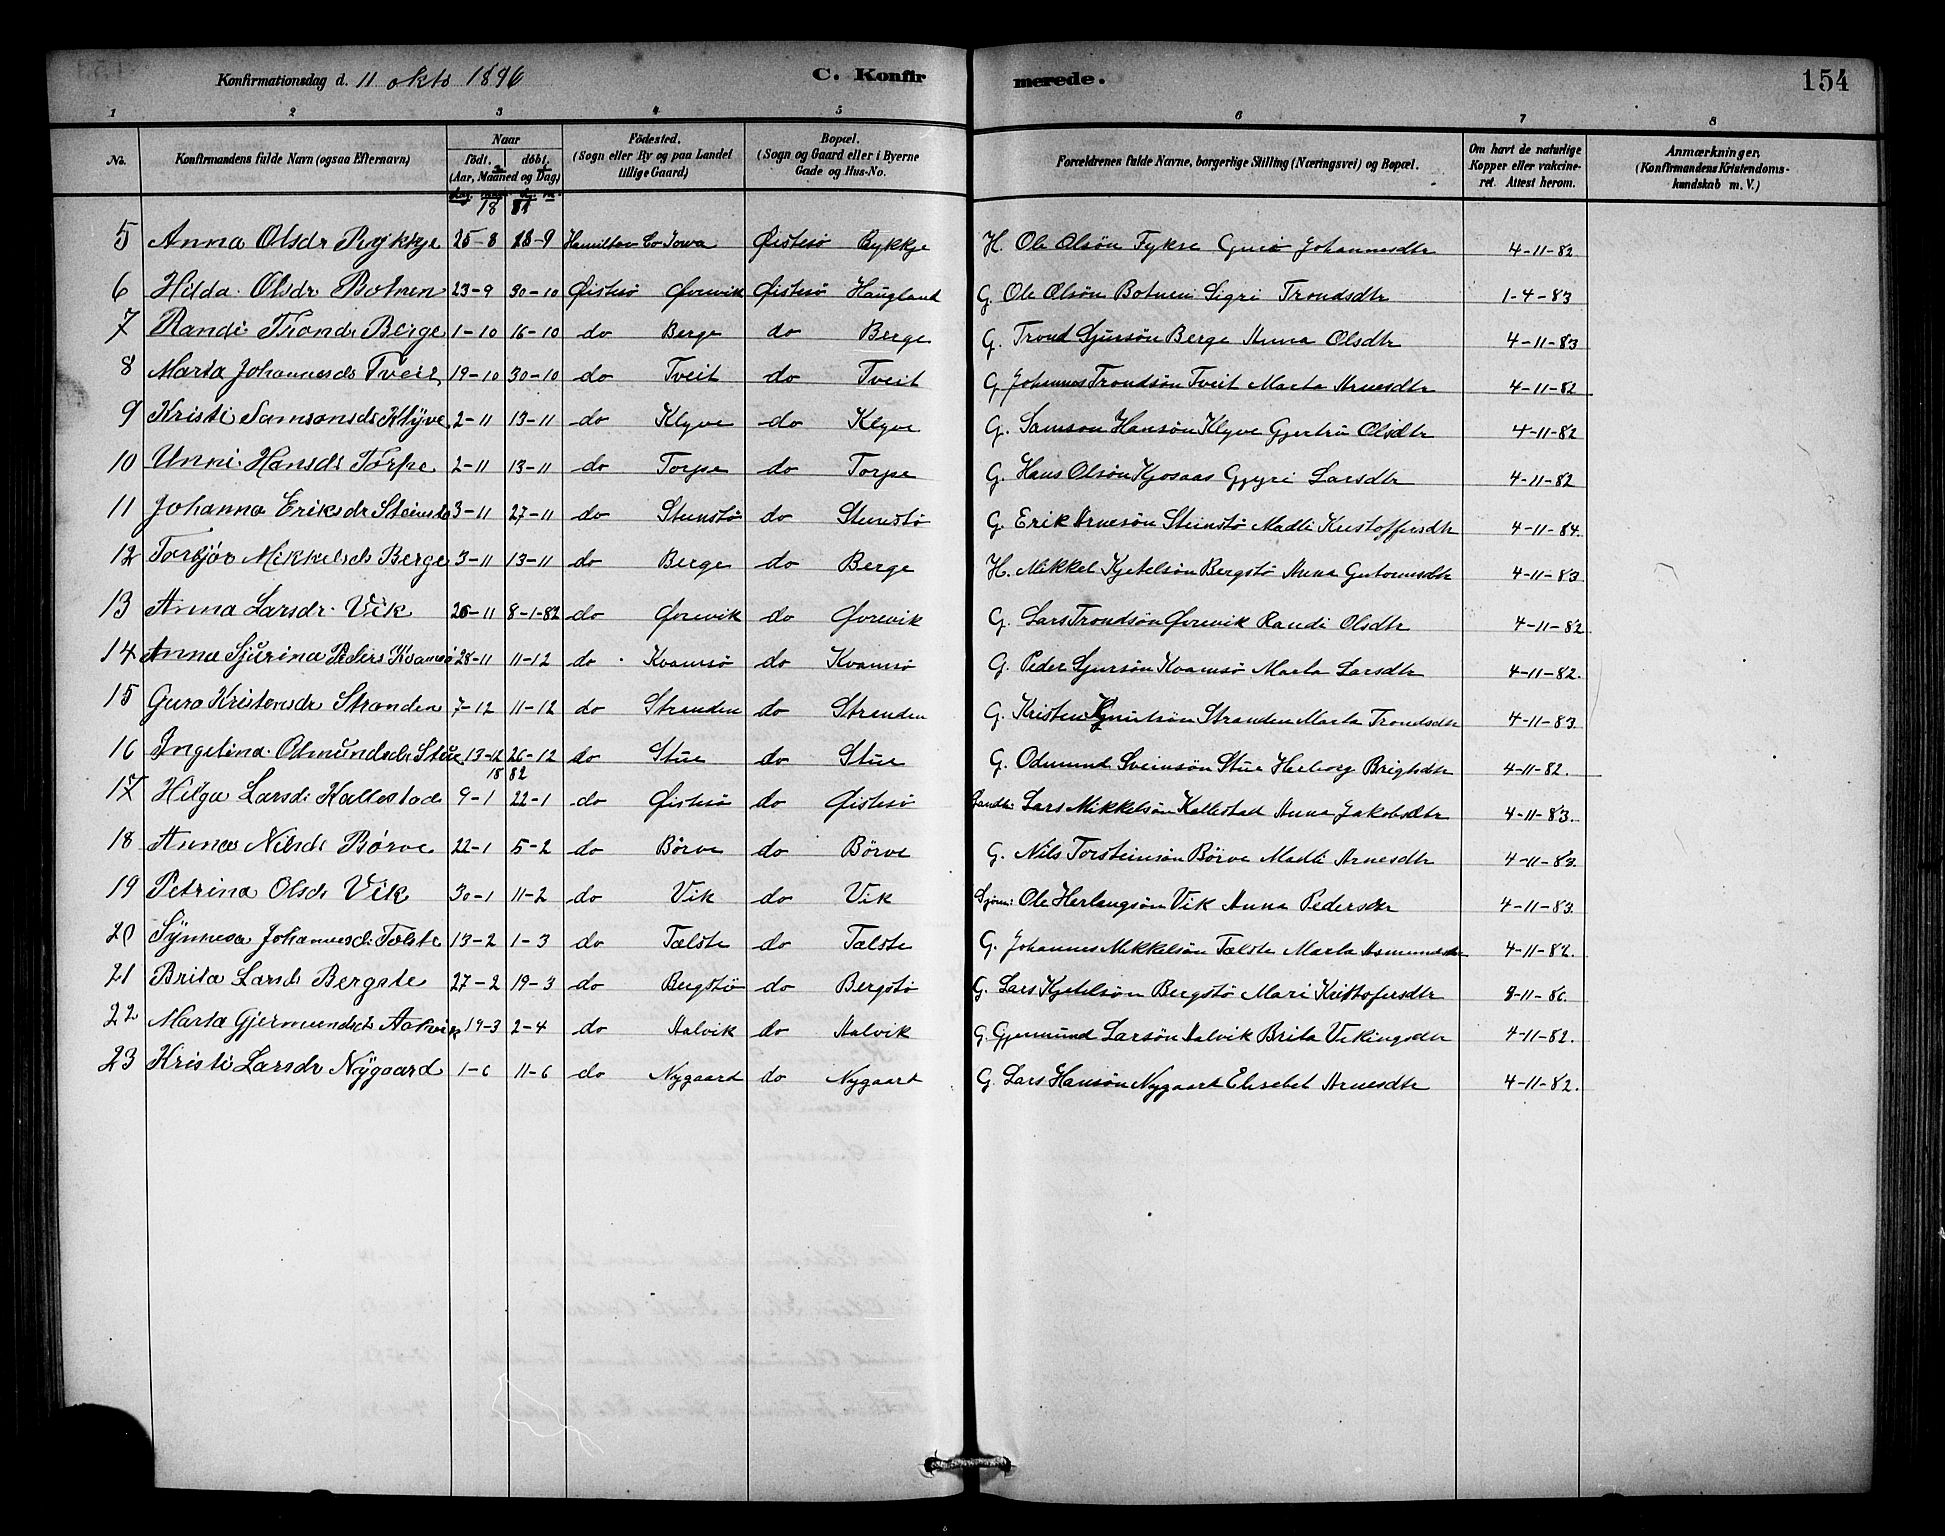 Konfirmationsdag d. 11 okto 1896 C. Konfirmerede. 154
1 2 3 4 5 6 7 8
No. Konfirmandens fulde Navn (ogsaa Efternavn) Naar födt, döbt, (Aar, Maaned og Dag) Födested. (Sogn eller By og paa Landet tillige Gaard) Bopæl. (Sogn og Gaard eller i Byerne Gade og Hus-No. Forældrenes fulde Navne, borgerlige Stilling (Næringsvei) og Bopæl. Om havt de naturlige Kopper eller vakcineret. Attest herom. Anmærkninger, (Konfirmandens Kristendomskundskab m. V.)
18 81
5 Anna Olsdr Bykkje 25-8 18-9 Hamilton Co Iowa Östesö Bykkje H. Ole Olsön Fykse Guri Johannesdtr 4-11-82
6 Hilda Olsdr Botnen 23-9 30-10 Östesö Övrevik Östesö Haugland G. Ole Olsön Botnen Sigri Trondsdtr 1-4-83
7 Randi Trondsdr Berge 1-10 16-10 do Berge do Berge G. Trond Sjursön Berge Anna Olsdtr 4-11-83
8 Marta Johannesdr Tveit 19-10 30-10 do Tveit do Tveit G. Johannes Trondsön Tveit Marta Arnesdtr 4-11-82
9 Kristi Samsonsdr Klyve 2-11 13-11 do Klyve do Klyve G. Samson Hansön Klyve Gjertru Olsdtr 4-11-82
10 Unni Hansdr Torpe 2-11 13-11 do Torpe do Torpe G. Hans Olsön Kjosaas Gyri Larsdtr 4-11-82
11 Johanna Eriksdr Steinstö 3-11 27-11 do Steinstö do Steinstö G. Erik Arnesön Steinstö Madli Kristoffersdtr 4-11-84.
12 Torbjör Mikkelsdr Berge 3-11 13-11 do Berge do Berge H. Mikkel Kjetelsön Bergstö Anna Guttormsdtr 4-11-83
13 Anna Larsdr Vik 26-11 8-1-82 do Övrevik do Övrevik G. Lars Trondsön Övrevik Randi Olsdtr 4-11-82
14 Anna Sjurina Peders Kvamsö 28-11 11-12 do Kvamsö do Kvamsö G. Peder Sjursön Kvamsö Marta Larsdtr 4-11-82.
15 Guro Kristensdr Stranden 7-12 11-12 do Stranden do Stranden G. Kristen Knutsön Stranden Marta Trondsdtr 4-11-83
16 Ingelina Odmundsdr Stue 13-12 26-12 do Stue do Stue G. Odmund Sveinsön Stue Herborg Brigtsdtr 4-11-82.
18 82
17 Hilga Larsdr Kallestad 9-1 22-1 do Östesö do Östesö Handl: Lars Mikkelsön Kallestad Anna Jakobsdtr 4-11-83.
18 Anna Nilsdr Börve 22-1 5-2 do Börve do Börve G. Nils Torsteinsön Börve Madli Arnesdtr 4-11-83.
19 Petrina Olsdr Vik 30-1 11-2 do Vik do Vik Sjöm: Ole Herlaugsön Vik Anna Pedersdtr 4-11-83.
20 Synneva Johannesdr Tolste 13-2 1-3 do Tolste do Tolste G. Johannes Mikkelsön Tolste Marta Asmundsdtr 4-11-82.
21 Brita Larsdr Bergstö 27-2 19-3 do Bergstö do Bergstö G. Lars Kjetelsön Bergstö Mari Kristofersdtr 8-11-86.
22 Marta Gjermundsdr Aalvik 19-3 2-4 do Aalvik do Aalvik G. Gjermund Larsön Aalvik Brita Vikingsdtr 4-11-82.
23 Kristi Larsdr Nygaard 1-6 11-6 do Nygaard do Nygaard G. Lars Hansön Nygaard Elisabet Arnesdtr 4-11-82.